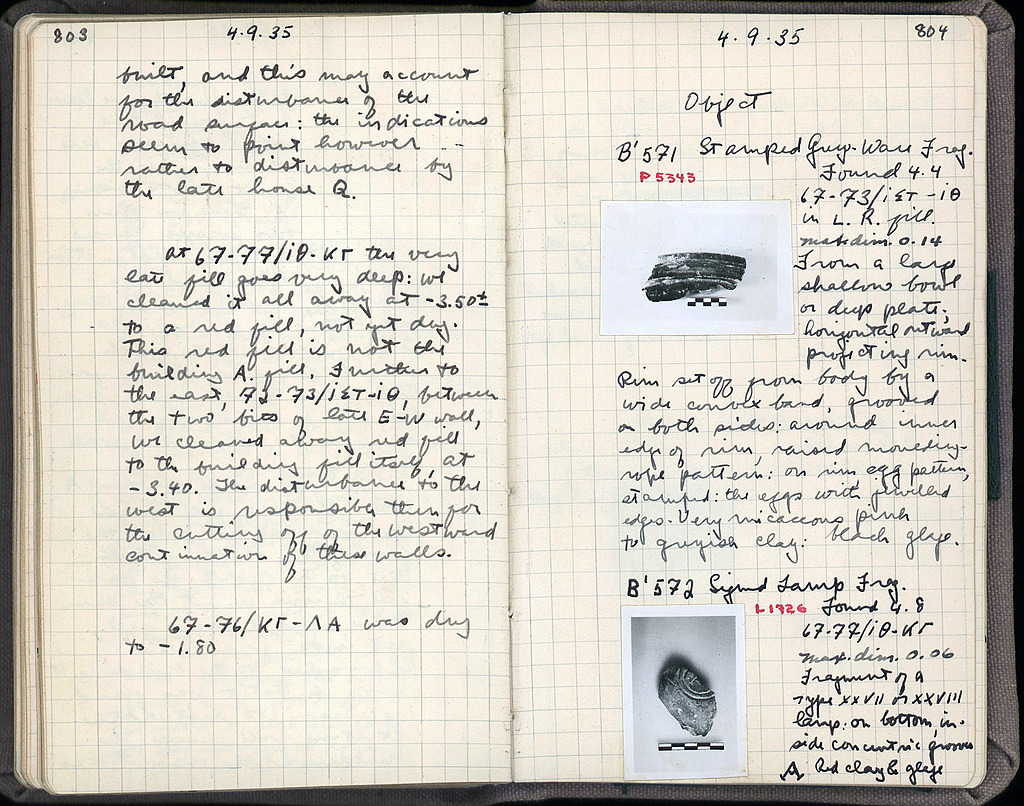 803
4.9.35
built, and this may account
for the disturbance of the
road surface: the indications
seem to point however --
rather to disturbance by
the late house Q.
At 67-77/ΙΘ-ΚΓ the very
late fill goes very deep: we
cleaned it all away at -3.50±
to a red fill, not yet dug.
This red fill is not the
building A fill. Further to
the east, 73-73/ΙΣΤ-ΙΘ, between
the two bits of late E-W wall,
we cleaned away red fill
to the building fill itself, at
-3.40. The disturbance to the
west is responsible then for
the cutting off of the westward
continuation of these walls.
67-76/ΚΓ-ΛΑ was dug
to -1.80
4.9.35
804
Object
B'571 Stamped Grey-Ware Frag.
P 5343
Found 4.4
67-73/ΙΣΤ-ΙΘ
in L.R. fill.
max. dim. 0.14
From a large
shallow bowl
or deep plate;
horizontal outward
projecting rim.
Rim set off from body by a
wide convex band, grooved
on both sides: around inner
edge of rim, raised moulding-
rope pattern: on rim egg pattern,
stamped: the eggs with jewelled
edges. Very micaceous pink
to greyish clay: black glaze.
B'572 Signed Lamp Frag.
L 1726
Found 4.8
67-77/ΙΘ-ΚΓ
max. dim. 0.06
Fragment of a
Type XXVII or XXVIII
lamp: on bottom, in-
side concentric grooves
A Red clay & glaze